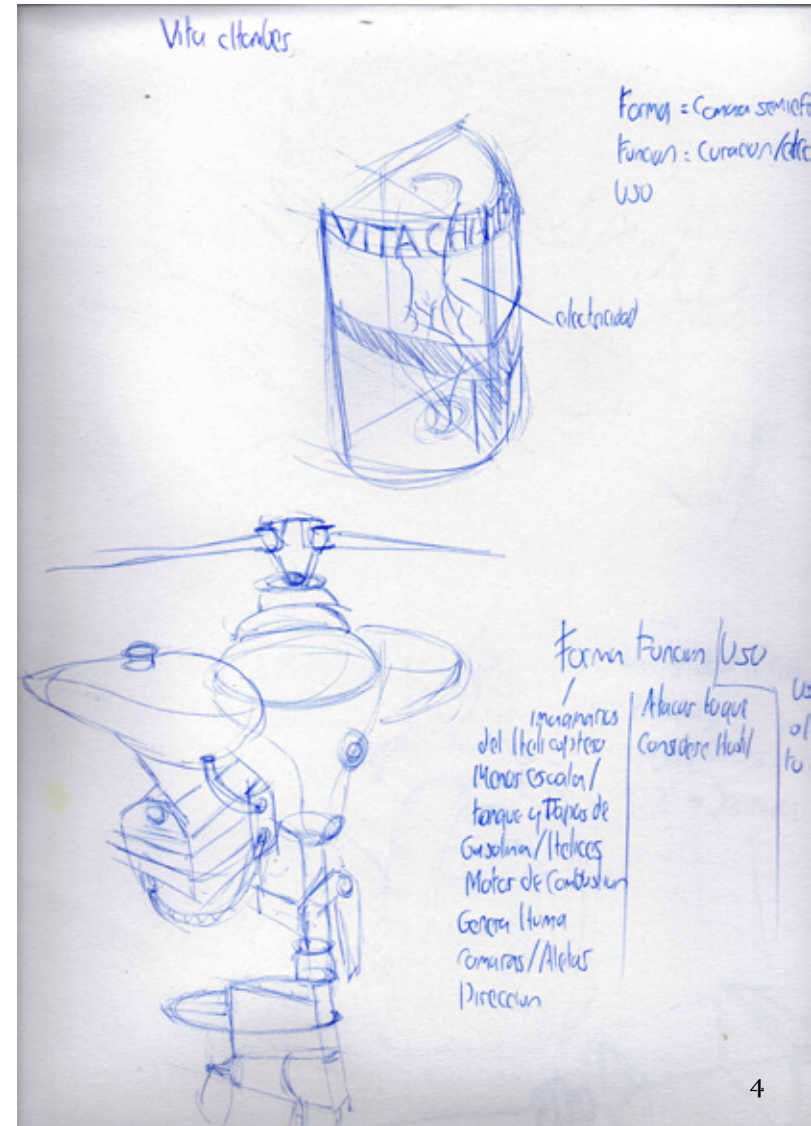 Vita chamber
Forma = Camara
Funcion = Curacion/
USO
VITA CHAM
electricidad
Forma Funcion | USO
del Helicoptero
Menor escala/
tanque y Tapas de
Gasolina/Helices
Motor de Combustion
Genera Humo
camaras/Aletas
Direccion
Atacar lo que
Considere Hostil
4